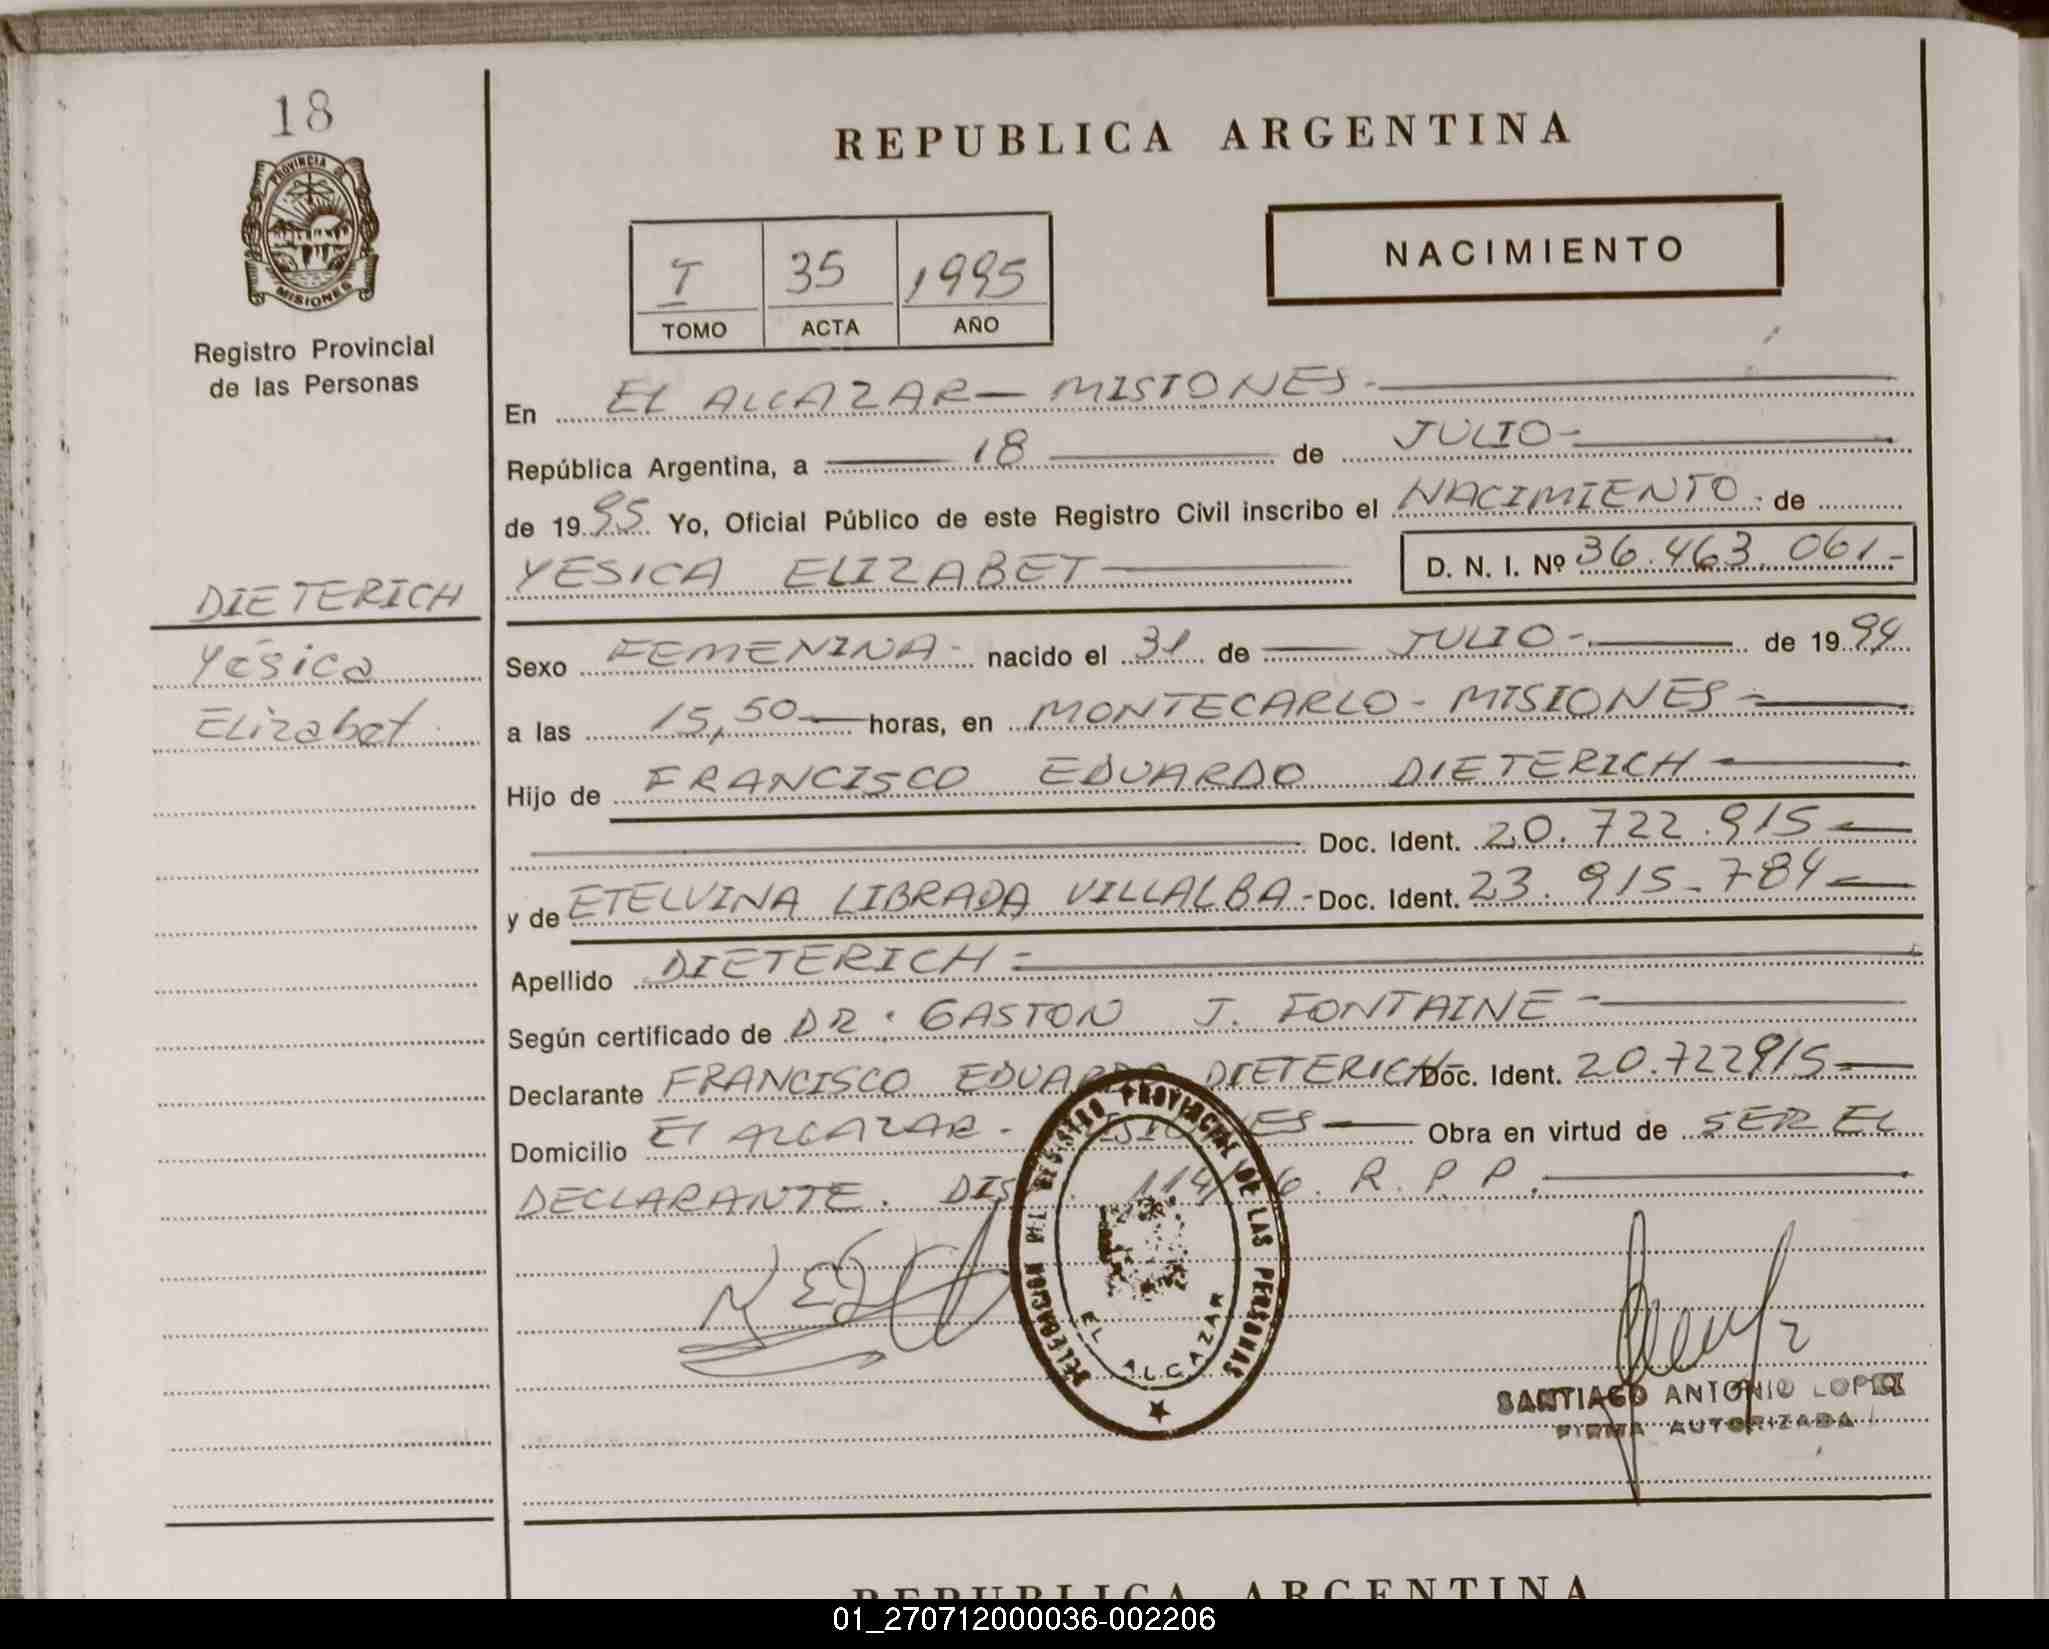 18
PROVINCIA
MISIONES
Registro Provincial
de las Personas
REPUBLICA ARGENTINA
NACIMIENTO
I 35 1995
TOMO ACTA AÑO
En EL ALCAZAR - MISIONES -
República Argentina, a 18 de JULIO -
de 1995 Yo, Oficial Público de este Registro Civil inscribo el NACIMIENTO - de
YESICA ELIZABET D. N. I. Nº 36.463.061-
DIETERICH
Yésica
Elizabet
Sexo FEMENINA - nacido el 31 de JULIO - de 1994
a las 15,50 horas, en MONTECARLO - MISIONES -
Hijo de FRANCISCO EDUARDO DIETERICH
Doc. Ident. 20.722.915
y de ETELVINA LIBRADA VILLALBA - Doc. Ident. 23.915.784
Apellido DIETERICH -
Según certificado de DR. GASTON J. FONTAINE -
Declarante FRANCISCO EDUARDO DIETERICH Doc. Ident. 20.722915
Domicilio EL ALCAZAR - MISIONES Obra en virtud de SER EL
DECLARANTE. R. P. P.
DELEGACION DEL REGISTRO PROVINCIAL DE LAS PERSONAS
EL ALCAZAR
SANTIAGO ANTONIO LOPEZ
FIRMA AUTORIZADA
REPUBLICA ARGENTINA
01_270712000036-002206